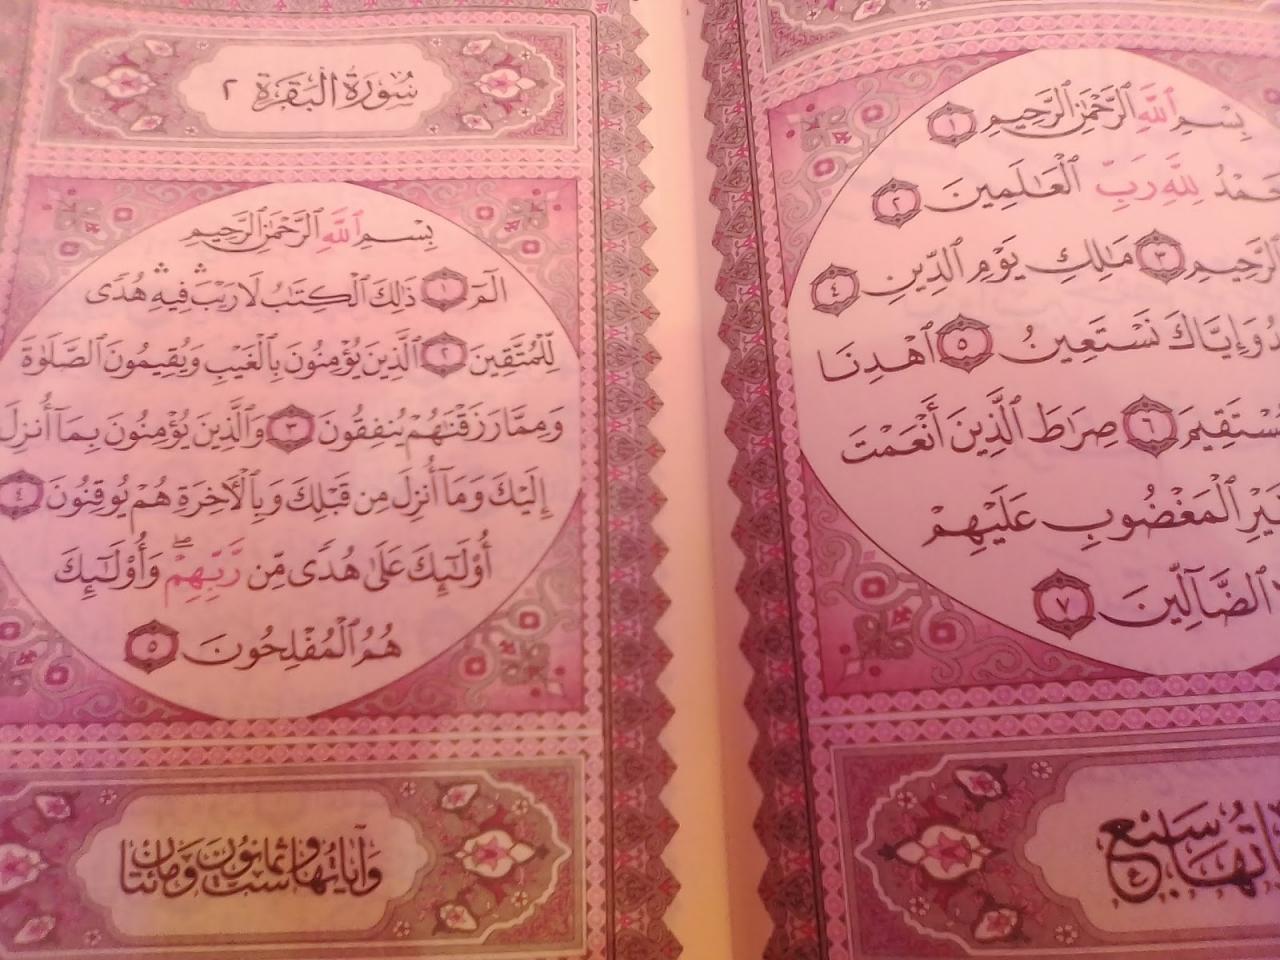 بِسْمِ ٱللَّهِ ٱلرَّحْمَٰنِ ٱلرَّحِيمِ ١
لِلَّهِ رَبِّ ٱلْعَٰلَمِينَ ٢
ٱلرَّحِيمِ ٣ مَٰلِكِ يَوْمِ ٱلدِّينِ ٤
وَإِيَّاكَ نَسْتَعِينُ ٥ ٱهْدِنَا
صِرَٰطَ ٱلَّذِينَ أَنْعَمْتَ ٦
ٱلْمَغْضُوبِ عَلَيْهِمْ
ٱلضَّآلِّينَ ٧
سَبْع
سُورَةُ البَقَرَةِ ٢
بِسْمِ ٱللَّهِ ٱلرَّحْمَٰنِ ٱلرَّحِيمِ
الٓمٓ ١ ذَٰلِكَ ٱلْكِتَٰبُ لَا رَيْبَ ۛ فِيهِ ۛ هُدًى
لِّلْمُتَّقِينَ ٢ ٱلَّذِينَ يُؤْمِنُونَ بِٱلْغَيْبِ وَيُقِيمُونَ ٱلصَّلَوٰةَ
وَمِمَّا رَزَقْنَٰهُمْ يُنفِقُونَ ٣ وَٱلَّذِينَ يُؤْمِنُونَ بِمَآ أُنزِلَ
إِلَيْكَ وَمَآ أُنزِلَ مِن قَبْلِكَ وَبِٱلْأٓخِرَةِ هُمْ يُوقِنُونَ ٤
أُو۟لَٰٓئِكَ عَلَىٰ هُدًى مِّن رَّبِّهِمْ ۖ وَأُو۟لَٰٓئِكَ
هُمُ ٱلْمُفْلِحُونَ ٥
وَآيَاتُهَا سِتٌّ وَثَمَانُونَ وَمِائَتَانِ